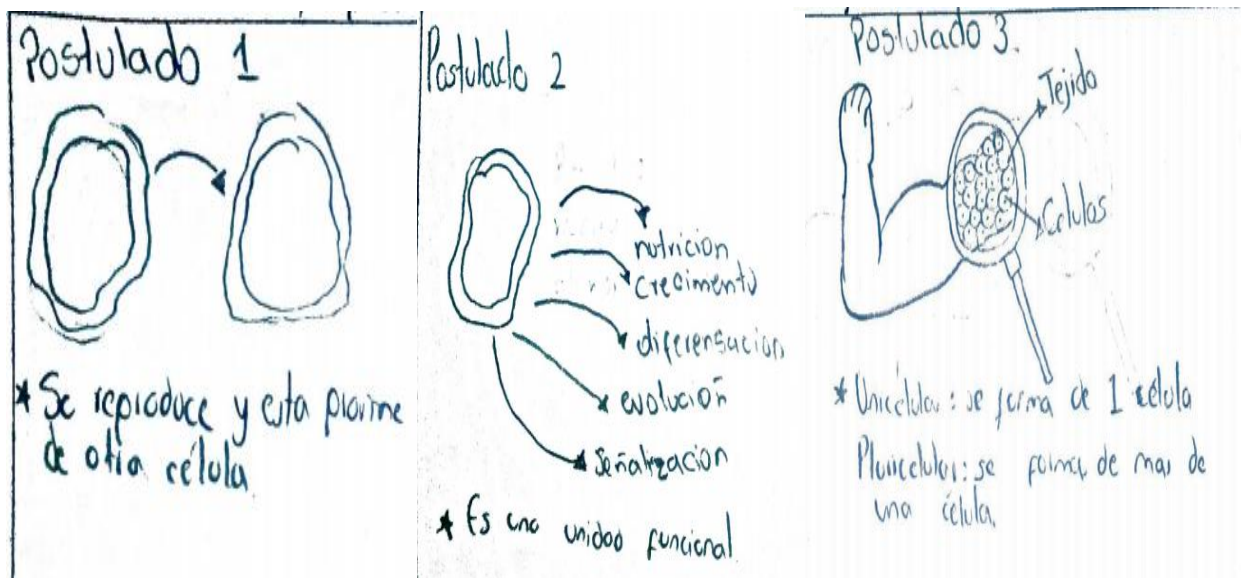 Postulado 1
* Se reproduce y esta proviene
de otra célula
Postulado 2
nutricion
crecimento
diferensacion
evolución
señalizacion
* Es una unidad funcional
Postulado 3.
Tejido
Células
* Unicelular: se forma de 1 célula
Pluricelular: se forma de mas de
una célula.